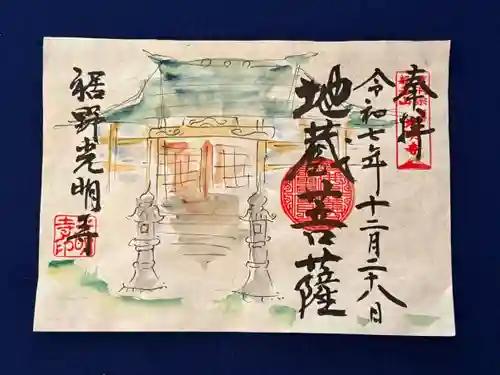 奉拝
令和七年十二月二十八日
地蔵菩薩
裾野光明寺